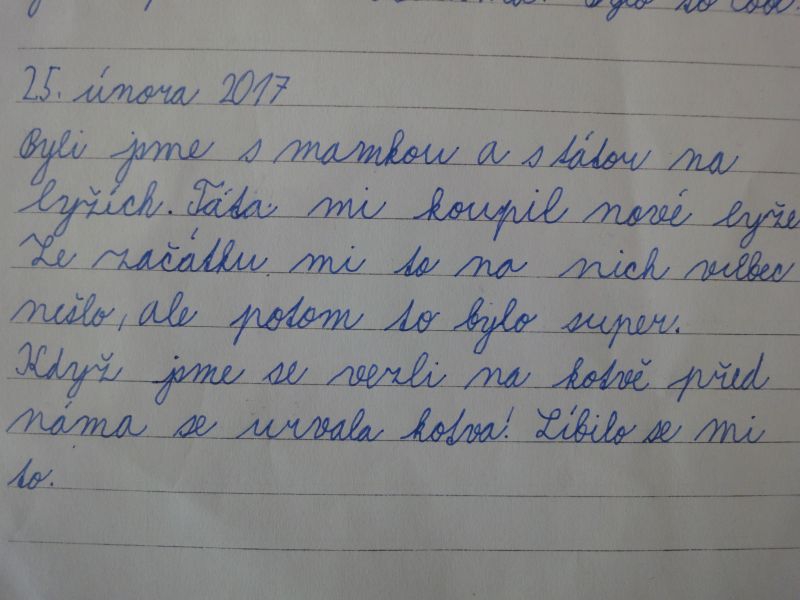 Bylo to cool.
25. února 2017
Byli jsme s mamkou a s tátou na
lyžích. Táta mi koupil nové lyže
Ze začátku mi to na nich vůbec
nešlo, ale potom to bylo super.
Když jsme se vezli na kotvě před
náma se urvala kotva! Líbilo se mi
to.